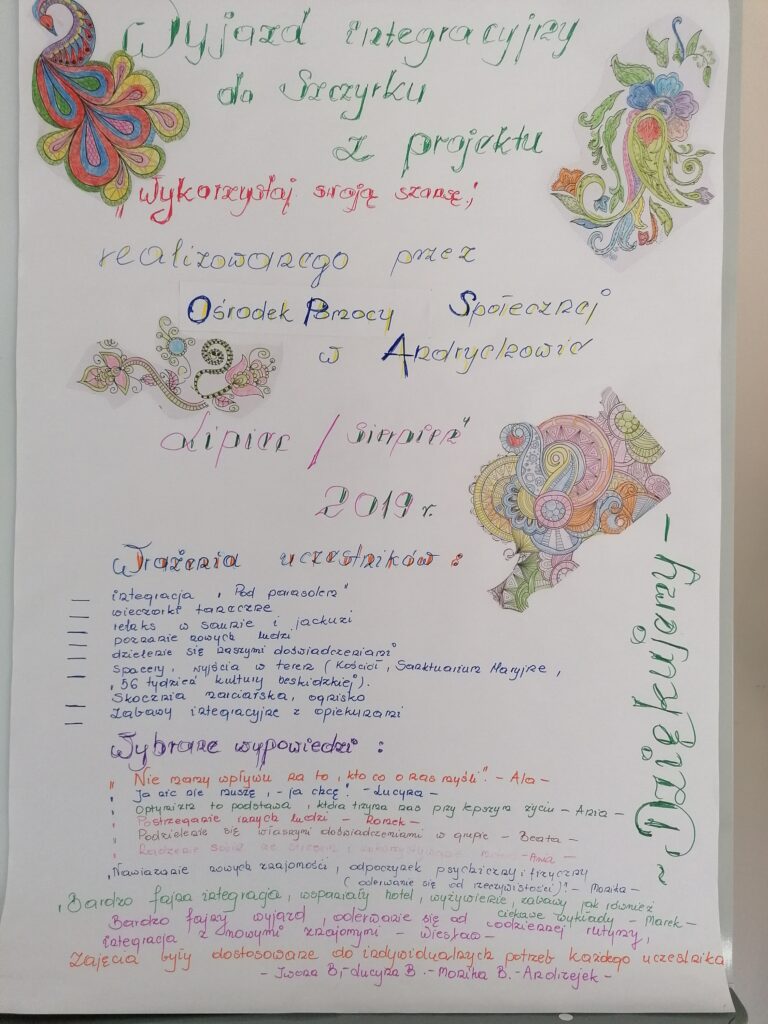 Wyjazd integracyjny
do Szczyrku
z projektu
"Wykorzystaj swoją szansę"
realizowanego przez
Ośrodek Pomocy Społecznej
w Andrychowie
Lipiec / Sierpień
2019 r.
Wrażenia uczestników :
— integracja "Pod parasolem"
— wieczorki taneczne
— relaks w saunie i jackuzi
— poznanie nowych ludzi
— dzielenie się naszymi doświadczeniami
— spacery, wyjścia w teren (Kościół, Sanktuarium Maryjne,
"56 tydzień kultury beskidzkiej").
— Skocznia narciarska, ognisko
— Zabawy integracyjne z opiekunami
~ Dziękujemy –
Wybrane wypowiedzi :
"Nie mamy wpływu na to, kto co o nas myśli". - Ala -
"Ja nic nie muszę, - ja chcę! - Lucyna -
"Optymizm to podstawa, która trzyma nas przy lepszym życiu - Ania -
"Postrzeganie innych ludzi - Romek -
"Podzielenie się własnymi doświadczeniami w grupie - Beata -
- Ania -
"Nawiązanie nowych znajomości, odpoczynek psychiczny i fizyczny
(oderwanie się od rzeczywistości)! - Monika -
"Bardzo fajna integracja, wspaniały hotel, wyżywienie, zabawy jak również
ciekawe wykłady - Marek -
Bardzo fajny wyjazd, oderwanie się od codziennej rutyny,
integracja z nowymi znajomymi - Wiesław -
Zajęcia były dostosowane do indywidualnych potrzeb każdego uczestnika
- Iwona B,- Lucyna B.- Monika B.- Andrzejek -